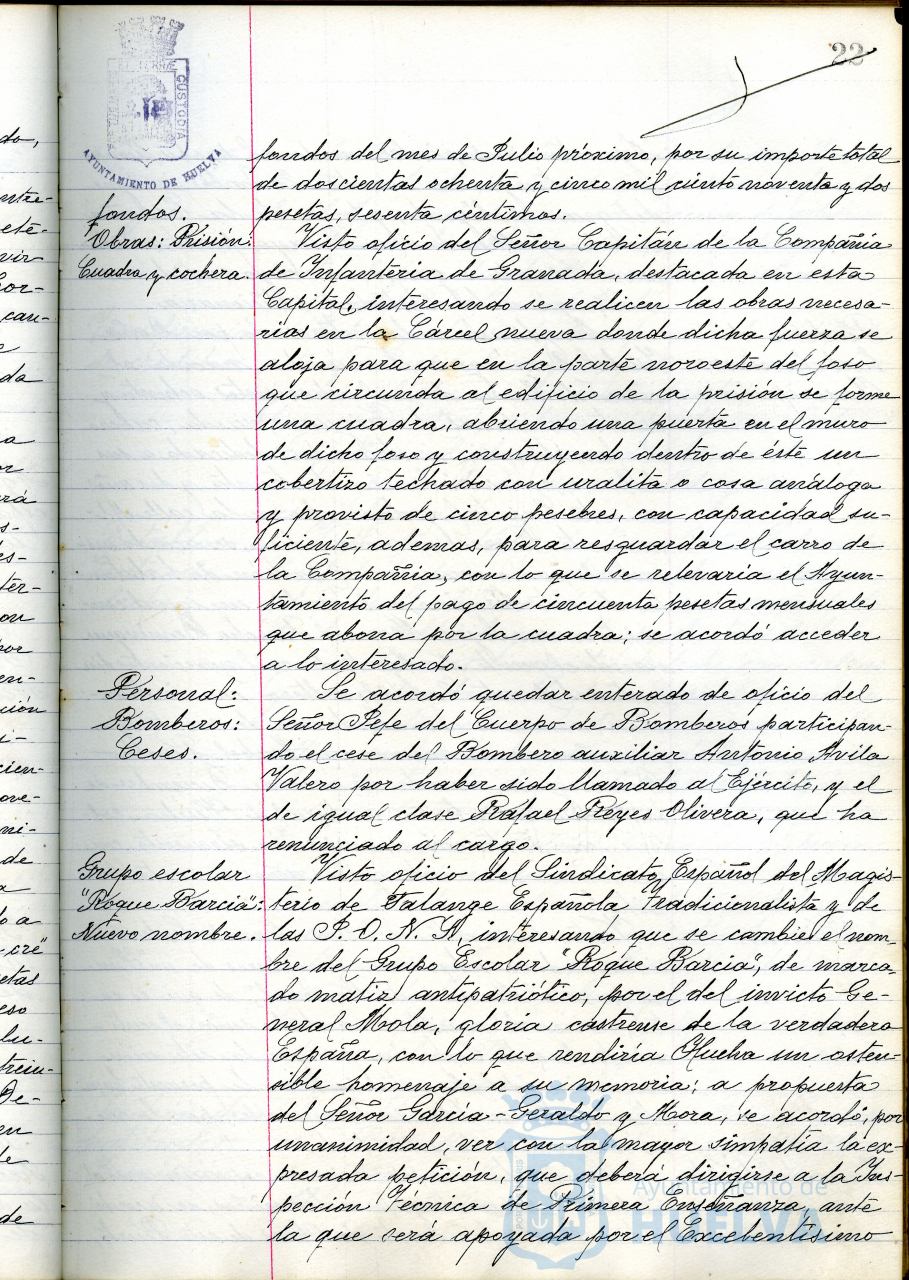 22
ET TERRÆ CUSTODIA
AYUNTAMIENTO DE HUELVA
fondos del mes de Julio próximo, por su importe total
de doscientas ochenta y cinco mil ciento noventa y dos
fondos.
pesetas, sesenta céntimos.
Obras: Prisión:
Cuadra y cochera.
Visto oficio del Señor Capitán de la Compañia
de Infanteria de Granada, destacada en esta
Capital, interesando se realicen las obras necesa-
rias en la Cárcel nueva donde dicha fuerza se
aloja para que en la parte noroeste del foso
que circunda al edificio de la prisión se forme
una cuadra, abriendo una puerta en el muro
de dicho foso y construyendo dentro de éste un
cobertizo techado con uralita o cosa análoga
y provisto de cinco pesebres, con capacidad su-
ficiente, ademas, para resguardar el carro de
la Compañia, con lo que se relevaria el Ayun-
tamiento del pago de cincuenta pesetas mensuales
que abona por la cuadra; se acordó acceder
a lo interesado.
Personal:
Bomberos:
Ceses.
Se acordó quedar enterado de oficio del
Señor Jefe del Cuerpo de Bomberos participan-
do el cese del Bombero auxiliar Antonio Avila
Valero por haber sido llamado al Ejército, y el
de igual clase Rafael Reyes Olivera, que ha
renunciado al cargo.
Grupo escolar
"Roque Barcia":
Nuevo nombre.
Visto oficio del Sindicato Español del Magis-
terio de Falange Española Tradicionalista y de
las J. O. N. S, interesando que se cambie el nom-
bre del Grupo Escolar "Roque Barcia", de marca-
do matiz antipatriótico, por el del invicto Ge-
neral Mola, gloria castrense de la verdadera
España, con lo que rendiría Huelva un osten-
sible homenaje a su memoria; a propuesta
del Señor García-Geraldo y Mora, se acordó, por
unanimidad, ver con la mayor simpatía la ex-
presada petición, que deberá dirigirse a la Ins-
pección Técnica de Primera Enseñanza, ante
la que será apoyada por el Excelentísimo
Ayuntamiento de
HUELVA